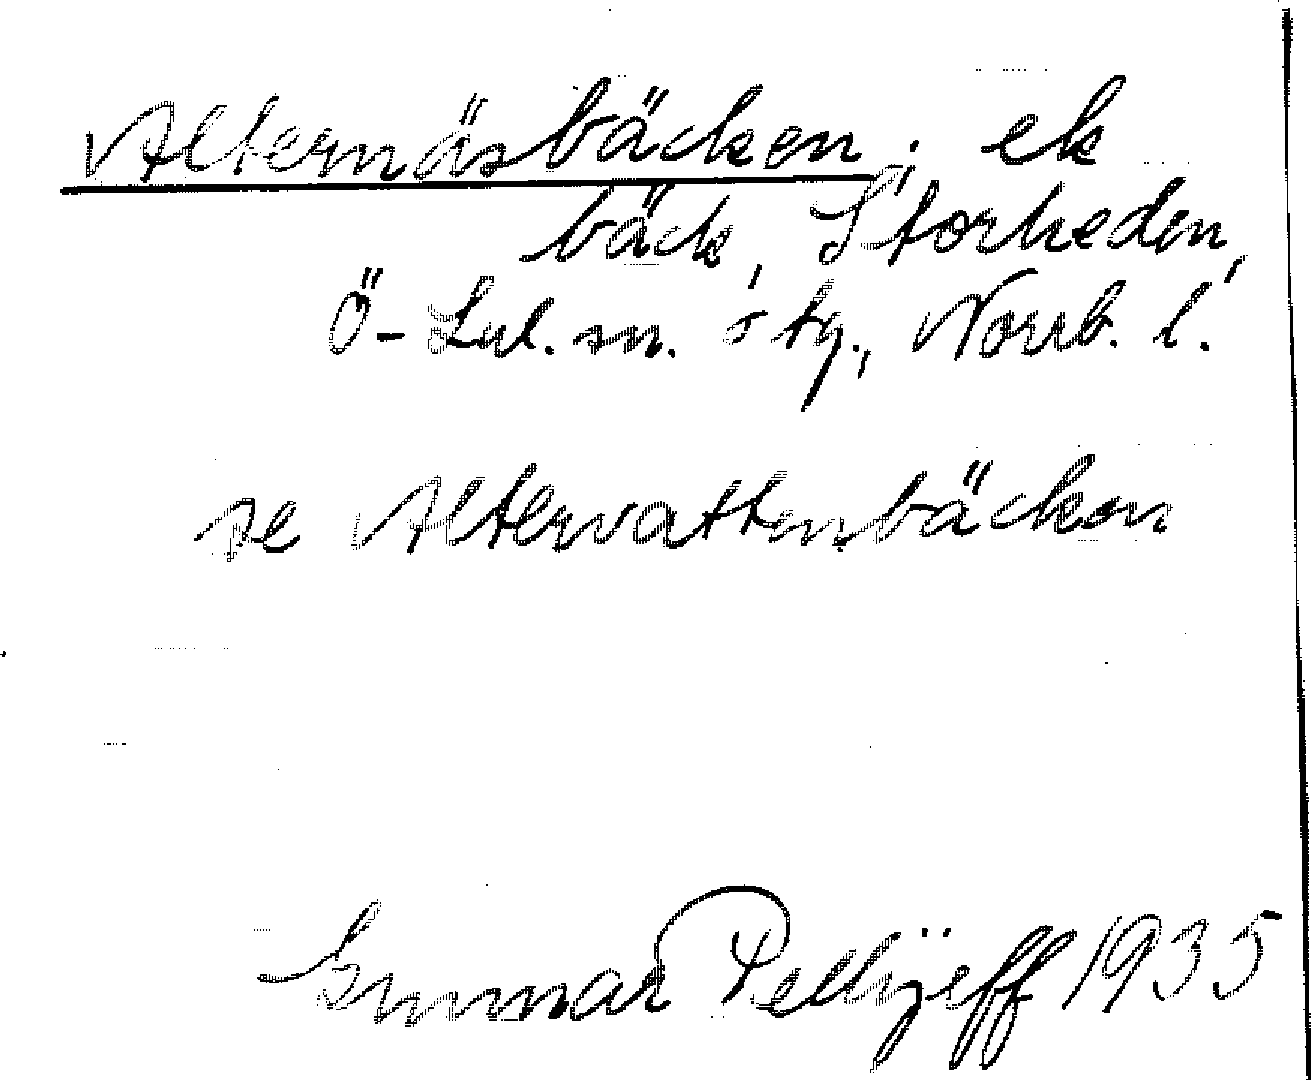 Alternäsbäcken; ek
bäck, Storheden,
Ö-Lul. sn. o tg., Norrb. l.
se Altervattenbäcken
Gunnar Pellijeff 1935